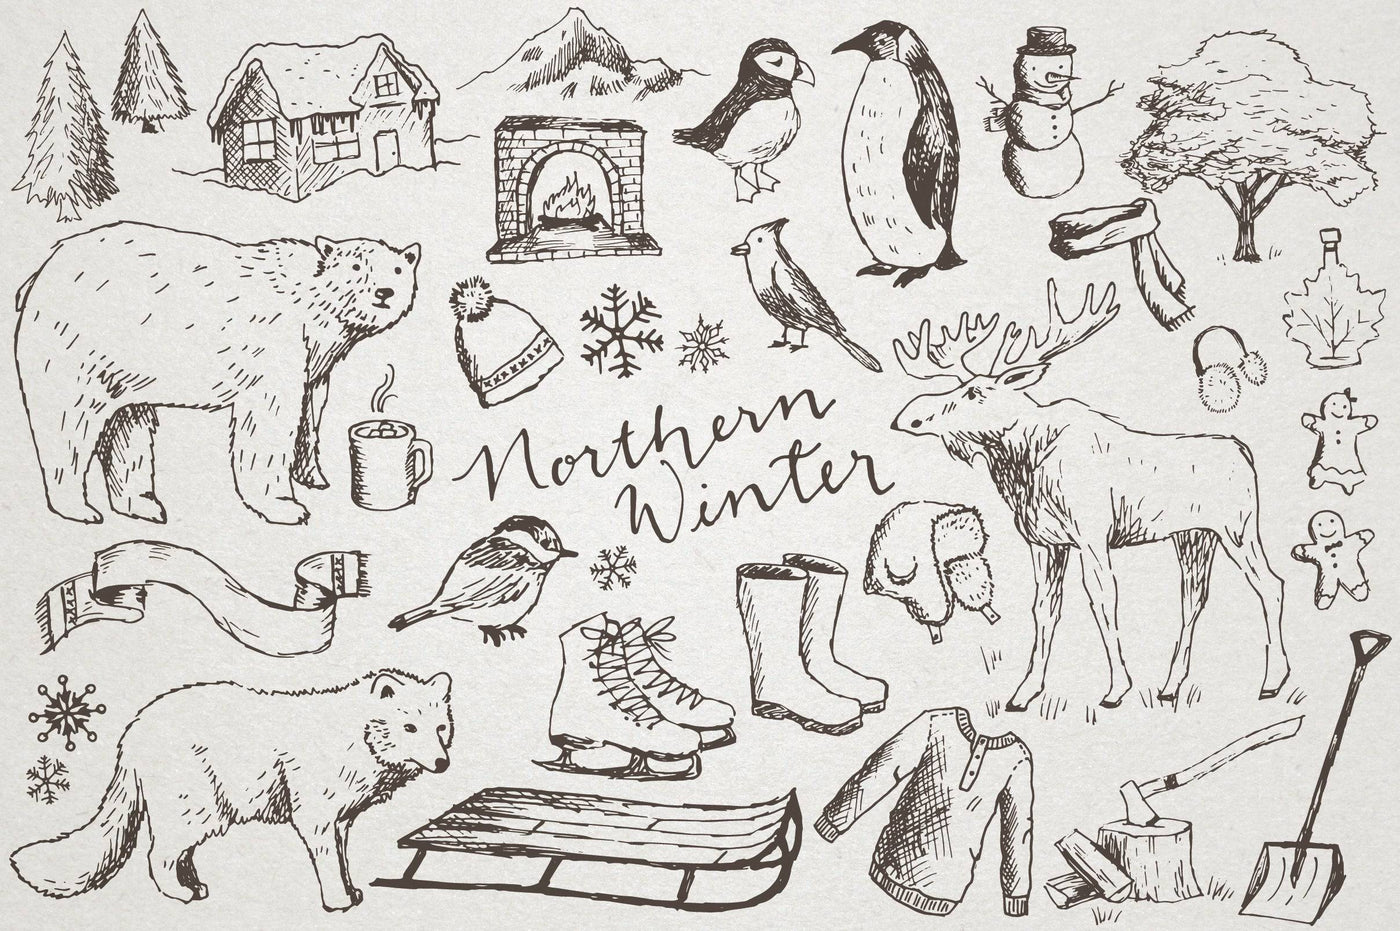 Northern
Winter